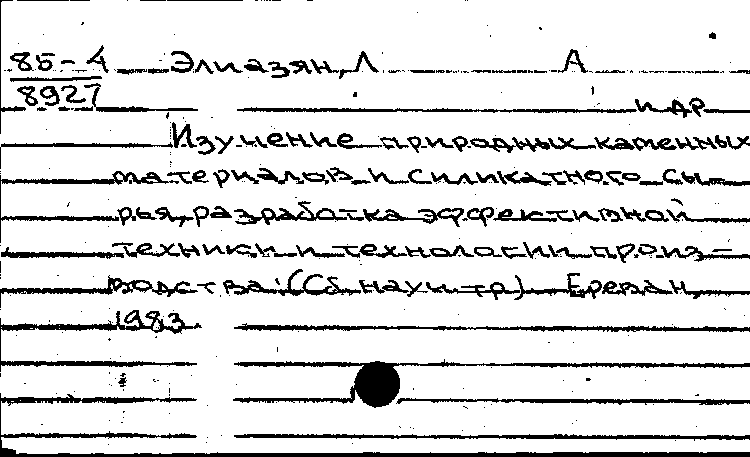 85-4 Элиазян, Л А
8927
и др
Изучение природных каменных
материалов и силикатного сы-
рья, разработка эффективной
техники и технологии произ-
водства: (Сб науч тр) Ереван,
1983